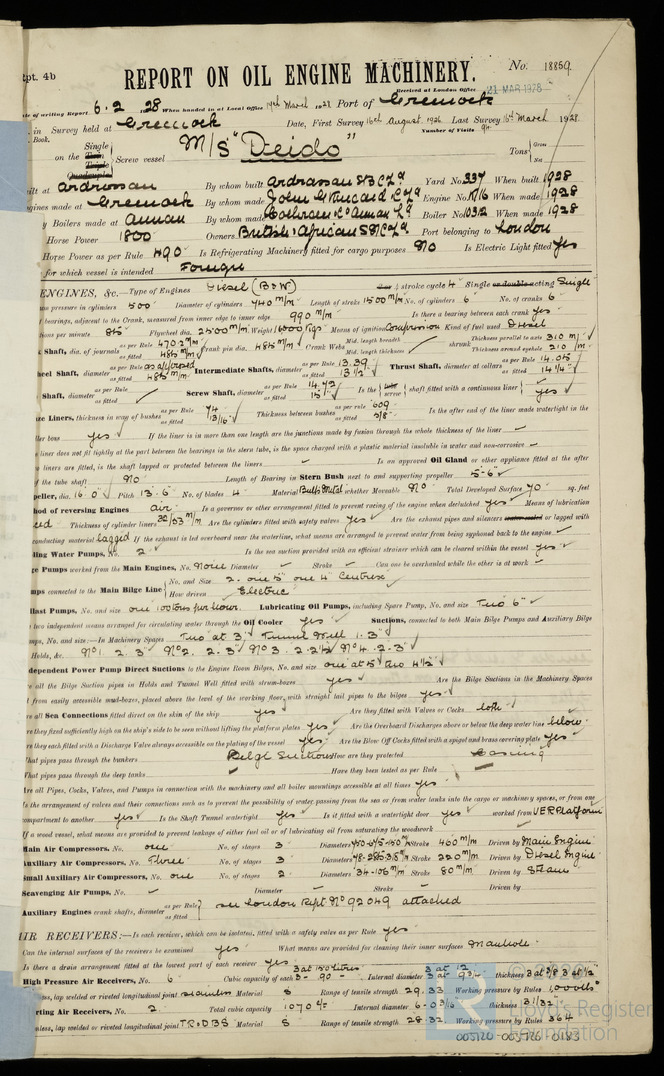 Rpt. 4b
REPORT ON OIL ENGINE MACHINERY.
No. 18859
Received at London Office 21 MAR 1928
of writing Report 6.2.28 When handed in at Local Office 17th March 1928 Port of Greenock
in Survey held at Greenock Date, First Survey 16th August 1926 Last Survey 16th March 1928
Book. Number of Visits
on the Single Triple Quadruple Screw vessel M/S "Deido" Tons Gross Net
built at Ardrossan By whom built Ardrossan Yard No. 337 When built 1928
Engines made at Greenock By whom made John G. Kincaid & Co Ld Engine No. K/16 When made 1928
Boilers made at Annan By whom made Cochran & Co Annan Ld Boiler No. 10312 When made 1928
Horse Power 1800 Owners British & African S N Co Ld Port belonging to London
Horse Power as per Rule 490 Is Refrigerating Machinery fitted for cargo purposes No Is Electric Light fitted Yes
for which vessel is intended Foreign
ENGINES, &c. Type of Engines Diesel (B & W) stroke cycle 4 Single or double acting Single
pressure in cylinders 500 Diameter of cylinders 740 m/m Length of stroke 1500 m/m No. of cylinders 6 No. of cranks 6
bearings, adjacent to the Crank, measured from inner edge to inner edge 990 m/m Is there a bearing between each crank yes
Flywheel dia. 2500 m/m Means of ignition Compression Kind of fuel used Diesel
Shaft, dia. of journals as per Rule 470.2 m/m as fitted 485 m/m Crank pin dia. 485 m/m Crank Webs Mid. length breadth Mid. length thickness shrunk Thickness parallel to axis 310 m/m Thickness around eyehole 210 m/m
Wheel Shaft, diameter as per Rule as fitted 485 m/m Intermediate Shafts, diameter as per Rule 13.39 as fitted 13 1/2 Thrust Shaft, diameter at collars as per Rule 14.05 as fitted 14 1/4
Shaft, diameter as per Rule as fitted Screw Shaft, diameter as per Rule 14.72 as fitted 15 Is the screw shaft fitted with a continuous liner yes
Liners, thickness in way of bushes as per Rule .74 as fitted 13/16 Thickness between bushes as per rule as fitted 5/8 Is the after end of the liner made watertight in the
boss yes If the liner is in more than one length are the junctions made by fusion through the whole thickness of the liner
liner does not fit tightly at the part between the bearings in the stern tube, is the space charged with a plastic material insoluble in water and non-corrosive
liners are fitted, is the shaft lapped or protected between the liners Is an approved Oil Gland or other appliance fitted at the after
of the tube shaft No Length of Bearing in Stern Bush next to and supporting propeller 5'-6"
Propeller, dia. 16.0 Pitch 13.6 No. of blades 4 Material whether Moveable No Total Developed Surface 70 sq. feet
Method of reversing Engines air Is a governor or other arrangement fitted to prevent racing of the engine when declutched yes Means of lubrication
Thickness of cylinder liners 32/53 m/m Are the cylinders fitted with safety valves yes Are the exhaust pipes and silencers water cooled or lagged with
conducting material lagged If the exhaust is led overboard near the waterline, what means are arranged to prevent water from being syphoned back to the engine
Cooling Water Pumps, No. 2 Is the sea suction provided with an efficient strainer which can be cleared within the vessel yes
Bilge Pumps worked from the Main Engines, No. None Diameter Stroke Can one be overhauled while the other is at work
Pumps connected to the Main Bilge Line No. and Size 2. one 5" one 4" Centrex How driven Electric
Ballast Pumps, No. and size one 100 tons per hour Lubricating Oil Pumps, including Spare Pump, No. and size Two 6"
two independent means arranged for circulating water through the Oil Cooler yes Suctions, connected to both Main Bilge Pumps and Auxiliary Bilge
Pumps, No. and size:—In Machinery Spaces Two at 3", Tunnel Well 1.3"
Holds, &c. No 1. 2.3" No 2. 2.3" No 3. 2.2 1/2 No 4. 2.3"
Independent Power Pump Direct Suctions to the Engine Room Bilges, No. and size one at 5" two 4 1/2
all the Bilge Suction pipes in Holds and Tunnel Well fitted with strum-boxes yes Are the Bilge Suctions in the Machinery Spaces
from easily accessible mud-boxes, placed above the level of the working floor, with straight tail pipes to the bilges yes
Are all Sea Connections fitted direct on the skin of the ship yes Are they fitted with Valves or Cocks both
Are they fixed sufficiently high on the ship's side to be seen without lifting the platform plates yes Are the Overboard Discharges above or below the deep water line below
Are they each fitted with a Discharge Valve always accessible on the plating of the vessel yes Are the Blow Off Cocks fitted with a spigot and brass covering plate yes
What pipes pass through the bunkers Bilge Suctions How are they protected Casing
What pipes pass through the deep tanks Have they been tested as per Rule
Are all Pipes, Cocks, Valves, and Pumps in connection with the machinery and all boiler mountings accessible at all times yes
Is the arrangement of valves and their connections such as to prevent the possibility of water passing from the sea or from water tanks into the cargo or machinery spaces, or from one
compartment to another yes Is the Shaft Tunnel watertight yes Is it fitted with a watertight door yes worked from Platform
If a wood vessel, what means are provided to prevent leakage of either fuel oil or of lubricating oil from saturating the woodwork
Main Air Compressors, No. one No. of stages 3 Diameters Stroke 460 m/m Driven by Main Engine
Auxiliary Air Compressors, No. Three No. of stages 3 Diameters Stroke 220 m/m Driven by Diesel Engine
Small Auxiliary Air Compressors, No. one No. of stages 2 Diameters 34-106 m/m Stroke 80 m/m Driven by Steam
Scavenging Air Pumps, No. Diameter Stroke Driven by
Auxiliary Engines crank shafts, diameter as per Rule as fitted see London Rept No 92049 attached
AIR RECEIVERS:—Is each receiver, which can be isolated, fitted with a safety valve as per Rule yes
Can the internal surfaces of the receivers be examined yes What means are provided for cleaning their inner surfaces Manhole
Is there a drain arrangement fitted at the lowest part of each receiver yes
High Pressure Air Receivers, No. 6 Cubic capacity of each 3 at 150 litres 3 - 90 Internal diameter 3 at 12 3 at 9 3/4 thickness 3 at 5/8 3 at 1/2
lap welded or riveted longitudinal joint Seamless Material S Range of tensile strength 29.33 Working pressure by Rules 1,000 lbs
Starting Air Receivers, No. 2 Total cubic capacity 1070 Internal diameter 6-0 3/16 thickness 1 1/32
lap welded or riveted longitudinal joint T.R.D.B.S Material S Range of tensile strength 28.32 Working pressure by Rules 364
Lloyd's Register
Foundation
005120-005126-0183